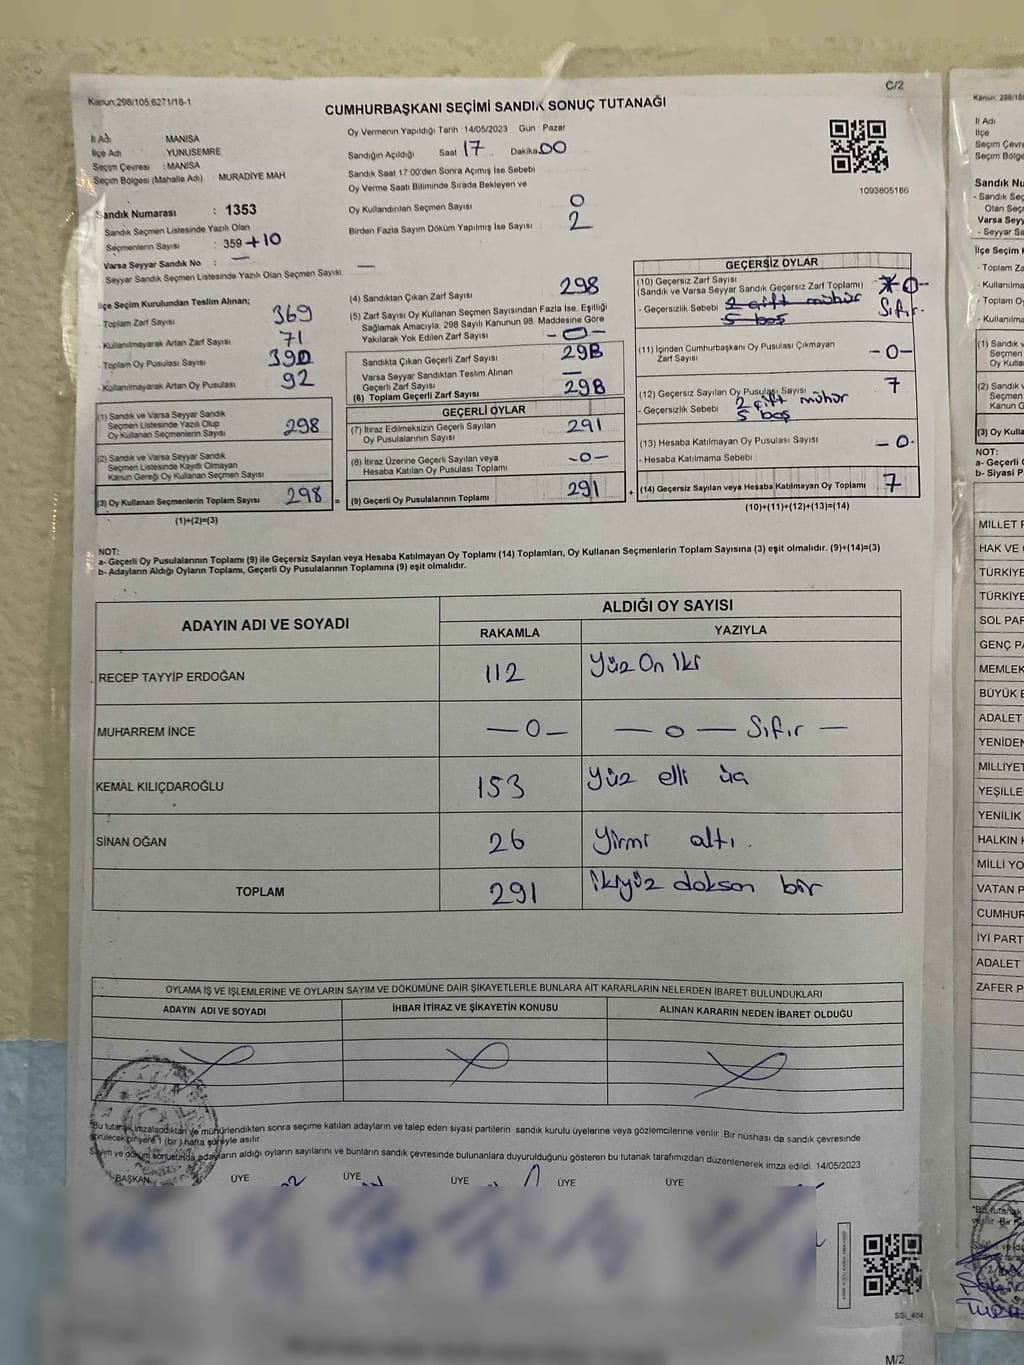 C/2
Kanun,298/105,6271/18-1
CUMHURBAŞKANI SEÇİMİ SANDIK SONUÇ TUTANAĞI
İl Adı : MANİSA
İlçe Adı : YUNUSEMRE
Seçim Çevresi : MANİSA
Seçim Bölgesi (Mahalle Adı) MURADİYE MAH
Oy Vermenin Yapıldığı Tarih 14/05/2023 Gün Pazar
Sandığın Açıldığı Saat 17 Dakika 00
Sandık Saat 17 00'den Sonra Açımış İse Sebebi
Oy Verme Saati Bitiminde Sırada Bekleyen ve
Oy Kullandırılan Seçmen Sayısı 0
Birden Fazla Sayım Döküm Yapılmış İse Sayısı 2
1093805186
Sandık Numarası : 1353
Sandık Seçmen Listesinde Yazılı Olan
Seçmenlerin Sayısı : 359 +10
Varsa Seyyar Sandık No : —
Seyyar Sandık Seçmen Listesinde Yazılı Olan Seçmen Sayısı —
İlçe Seçim Kurulundan Teslim Alınan;
- Toplam Zarf Sayısı 369
- Kullanılmayarak Artan Zarf Sayısı 71
- Toplam Oy Pusulası Sayısı 390
- Kullanılmayarak Artan Oy Pusulası 92
(1) Sandık ve Varsa Seyyar Sandık
Seçmen Listesinde Yazılı Olup
Oy Kullanan Seçmenlerin Sayısı 298
(2) Sandık ve Varsa Seyyar Sandık
Seçmen Listesinde Kayıtlı Olmayan
Kanun Gereği Oy Kullanan Seçmen Sayısı
(3) Oy Kullanan Seçmenlerin Toplam Sayısı 298 =
(1)+(2)=(3)
(4) Sandıktan Çıkan Zarf Sayısı 298
(5) Zarf Sayısı Oy Kullanan Seçmen Sayısından Fazla İse, Eşitliği
Sağlamak Amacıyla, 298 Sayılı Kanunun 98. Maddesine Göre
Yakılarak Yok Edilen Zarf Sayısı -0-
Sandıkta Çıkan Geçerli Zarf Sayısı 298
Varsa Seyyar Sandıktan Teslim Alınan
Geçerli Zarf Sayısı —
(6) Toplam Geçerli Zarf Sayısı 298
GEÇERLİ OYLAR
(7) İtiraz Edilmeksizin Geçerli Sayılan
Oy Pusulalarının Sayısı 291
(8) İtiraz Üzerine Geçerli Sayılan veya
Hesaba Katılan Oy Pusulası Toplamı -0-
(9) Geçerli Oy Pusulalarının Toplamı 291 +
GEÇERSİZ OYLAR
(10) Geçersiz Zarf Sayısı
(Sandık ve Varsa Seyyar Sandık Geçersiz Zarf Toplamı) 7 -0-
- Geçersizlik Sebebi 2 çift mühür Sıfır.
5 boş
(11) İçinden Cumhurbaşkanı Oy Pusulası Çıkmayan
Zarf Sayısı -0-
(12) Geçersiz Sayılan Oy Pusulası Sayısı 7
- Geçersizlik Sebebi 2 çift mühür
5 boş
(13) Hesaba Katılmayan Oy Pusulası Sayısı -0-
- Hesaba Katılmama Sebebi
(14) Geçersiz Sayılan veya Hesaba Katılmayan Oy Toplamı 7
(10)+(11)+(12)+(13)=(14)
NOT:
a- Geçerli Oy Pusulalarının Toplamı (9) ile Geçersiz Sayılan veya Hesaba Katılmayan Oy Toplamı (14) Toplamları, Oy Kullanan Seçmenlerin Toplam Sayısına (3) eşit olmalıdır. (9)+(14)=(3)
b- Adayların Aldığı Oyların Toplamı, Geçerli Oy Pusulalarının Toplamına (9) eşit olmalıdır.
ADAYIN ADI VE SOYADI
ALDIĞI OY SAYISI
RAKAMLA YAZIYLA
RECEP TAYYİP ERDOĞAN 112 Yüz On İki
MUHARREM İNCE —0— — 0 — Sıfır —
KEMAL KILIÇDAROĞLU 153 Yüz elli üç
SİNAN OĞAN 26 Yirmi altı.
TOPLAM 291 İkiyüz doksan bir
OYLAMA İŞ VE İŞLEMLERİNE VE OYLARIN SAYIM VE DÖKÜMÜNE DAİR ŞİKAYETLERLE BUNLARA AİT KARARLARIN NELERDEN İBARET BULUNDUKLARI
ADAYIN ADI VE SOYADI İHBAR İTİRAZ VE ŞİKAYETİN KONUSU ALINAN KARARIN NEDEN İBARET OLDUĞU
*Bu tutanak imzalandıktan ve mühürlendikten sonra seçime katılan adayların ve talep eden siyasi partilerin sandık kurulu üyelerine veya gözlemcilerine verilir. Bir nüshası da sandık çevresinde
görülecek bir yere 1 (bir) hafta süreyle asılır.
Sayım ve döküm sonucunda adayların aldığı oyların sayılarını ve bunların sandık çevresinde bulunanlara duyurulduğunu gösteren bu tutanak tarafımızdan düzenlenerek imza edildi. 14/05/2023
BAŞKAN ÜYE ÜYE ÜYE ÜYE ÜYE
SSİ_404
M/2
Kanun, 298/10
İl Adı
İlçe
Seçim Çevre
Seçim Bölge
Sandık Nu
- Sandık Seç
Olan Seç
Varsa Seyy
- Seyyar Sa
İlçe Seçim
- Toplam Za
- Kullanılma
- Toplam O
- Kullanılma
(1) Sandık v
Seçmen
Oy Kulla
(2) Sandık v
Seçmen
Kanun G
(3) Oy Kulla
NOT:
a- Geçerli
b- Siyasi P
MİLLET
HAK VE
TÜRKİYE
TÜRKİYE
SOL PAR
GENÇ PA
MEMLEK
BÜYÜK
ADALET
YENİDEN
MİLLİYET
YEŞİLLE
YENİLİK
HALKIN
MİLLİ YO
VATAN P
CUMHUR
İYİ PART
ADALET
ZAFER P